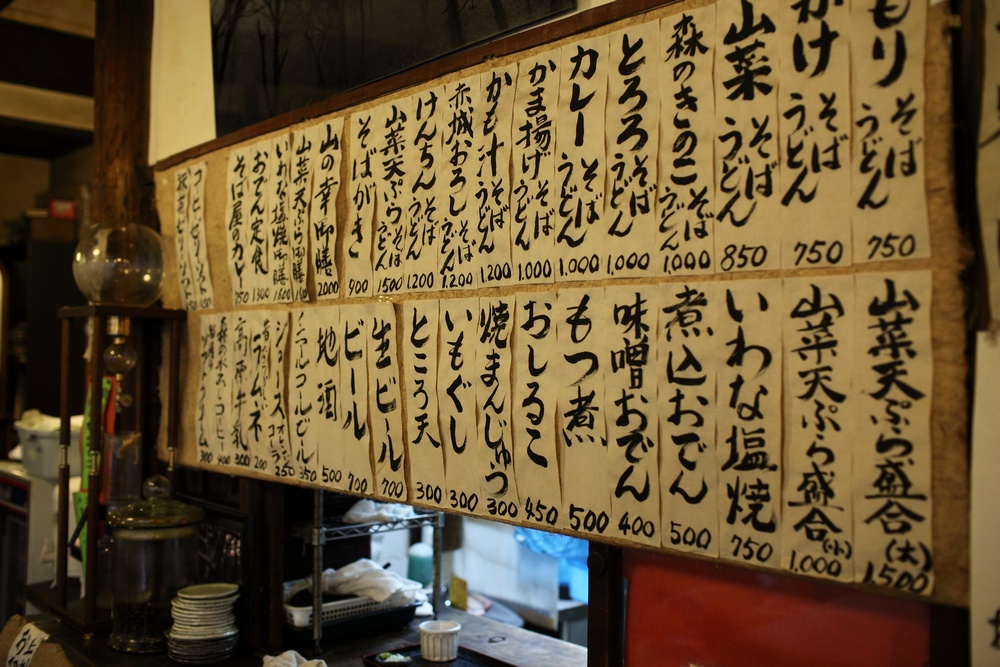 もり そば うどん 750
かけ そば うどん 750
山菜 そば うどん 850
森のきのこ そば うどん 1,000
とろろ そば うどん 1,000
カレー そば うどん 1,000
かま揚げ そば うどん 1,000
かも汁 そば うどん 1,200
赤城おろし そば うどん 1,200
けんちん そば うどん 1200
山菜天ぷら そば うどん 1500
そばがき 900
山の幸御膳 2000
山菜天ぷら御膳
いわな塩焼御膳
おでん定食 1300
そば屋のカレー 750
山菜天ぷら盛合(大) 1,500
山菜天ぷら盛合(小) 1,000
いわな塩焼 750
煮込おでん 500
味噌おでん 400
もつ煮 500
おしるこ 450
焼まんじゅう 300
いもぐし 300
ところ天 300
生ビール 700
ビール 700
地酒 500
ノンアルコールビール 350
ジュース オレンジ コーラ 250
ラムネ 200
高原牛乳 300
400
300